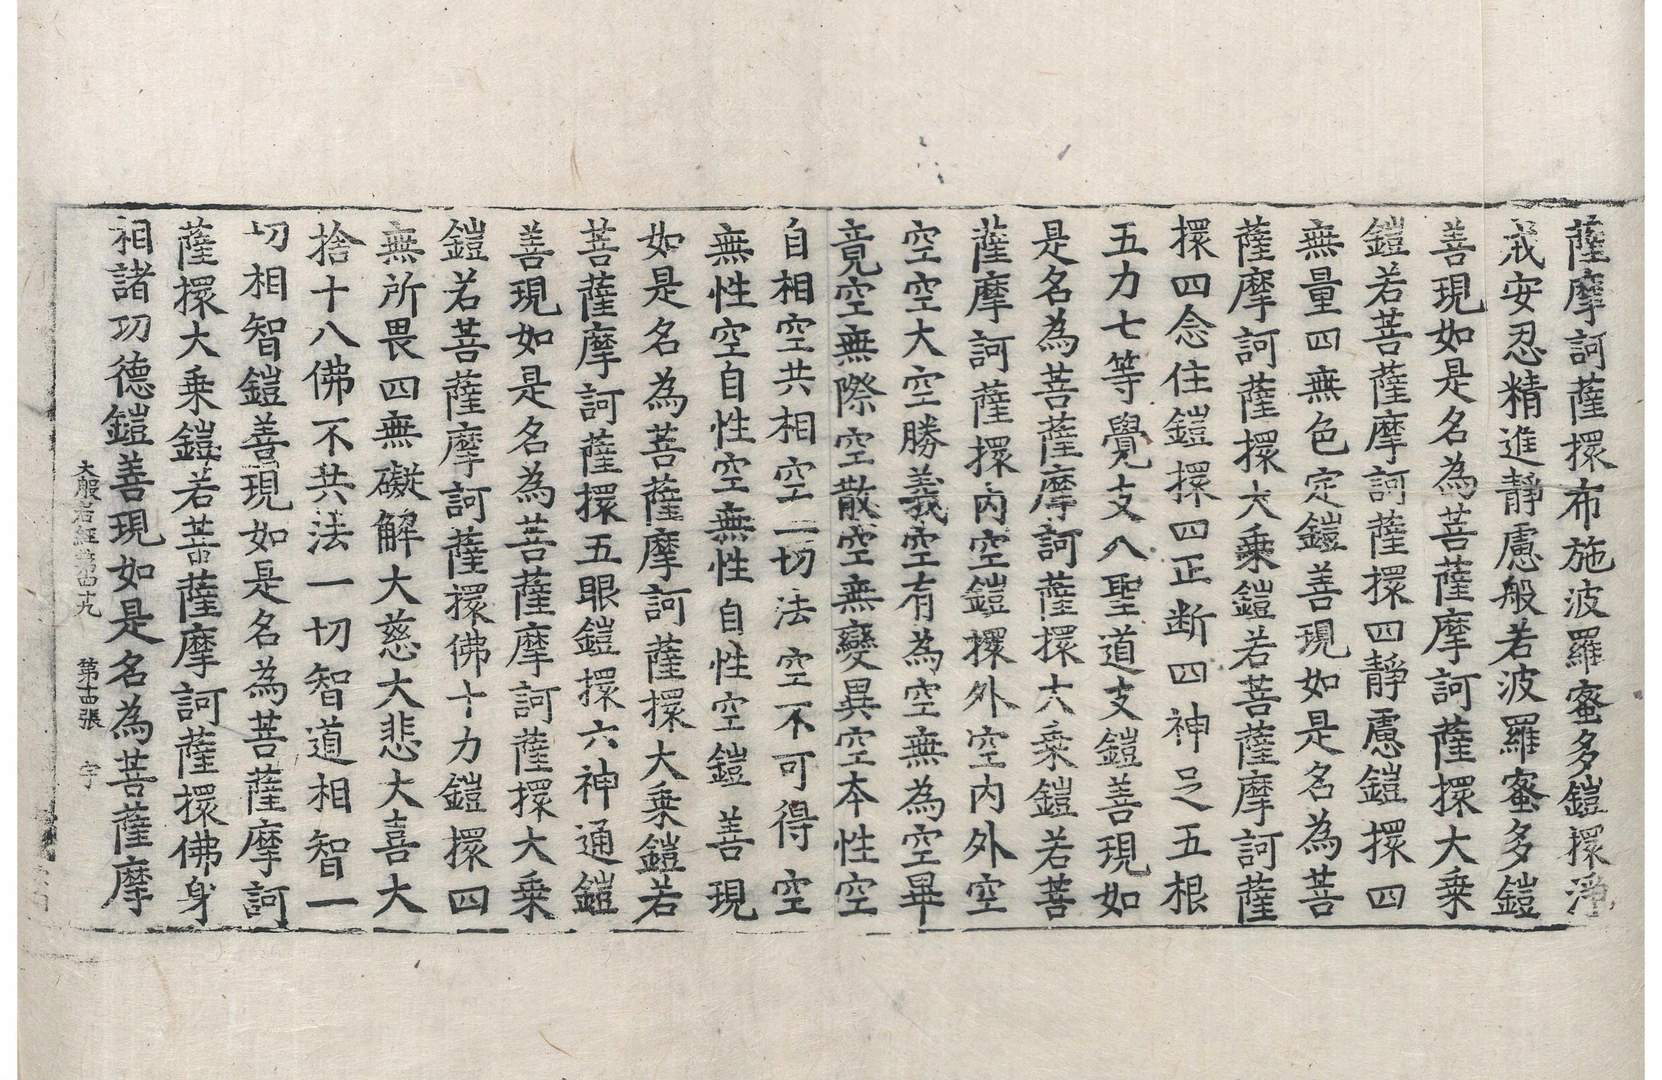 薩摩訶薩擐布施波羅蜜多鎧擐淨
戒安忍精進靜慮般若波羅蜜多鎧
善現如是名為菩薩摩訶薩擐大乘
鎧若菩薩摩訶薩擐四靜慮鎧擐四
無量四無色定鎧善現如是名為菩
薩摩訶薩擐大乘鎧若菩薩摩訶薩
擐四念住鎧擐四正断四神足五根
五力七等覺支八聖道支鎧善現如
是名為菩薩摩訶薩擐大乘鎧若菩
薩摩訶薩擐內空鎧擐外空內外空
空空大空勝義空有為空無為空畢
竟空無際空散空無變異空本性空
自相空共相空一切法空不可得空
無性空自性空無性自性空鎧善現
如是名為菩薩摩訶薩擐大乘鎧若
菩薩摩訶薩擐五眼鎧擐六神通鎧
善現如是名為菩薩摩訶薩擐大乘
鎧若菩薩摩訶薩擐佛十力鎧擐四
無所畏四無礙解大慈大悲大喜大
捨十八佛不共法一切智道相智一
切相智鎧善現如是名為菩薩摩訶
薩擐大乘鎧若菩薩摩訶薩擐佛身
相諸功德鎧善現如是名為菩薩摩
大般若經第四十九 第十四張 宇